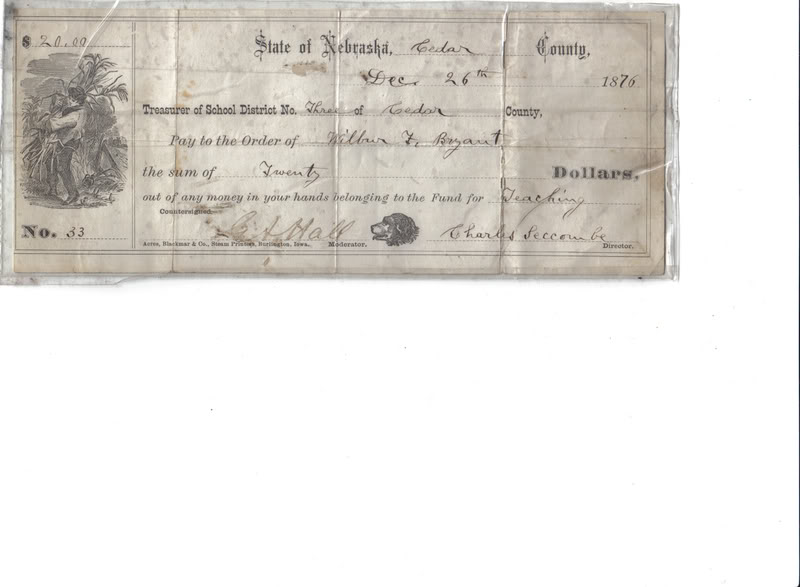 $ 20.00
State of Nebraska, Cedar County,
Dec. 26th 1876
Treasurer of School District No. Three of Cedar County,
Pay to the Order of Wilbur F. Bryant
the sum of Twenty Dollars,
out of any money in your hands belonging to the Fund for Teaching
Countersigned
No. 33 Hall Charles Seccombe
Acres, Blackmar & Co., Steam Printers, Burlington, Iowa. Moderator. Director.